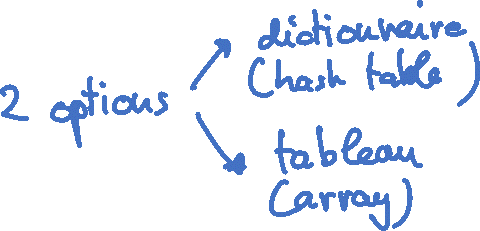 2 options
dictionnaire
(hash table)
tableau
(array)